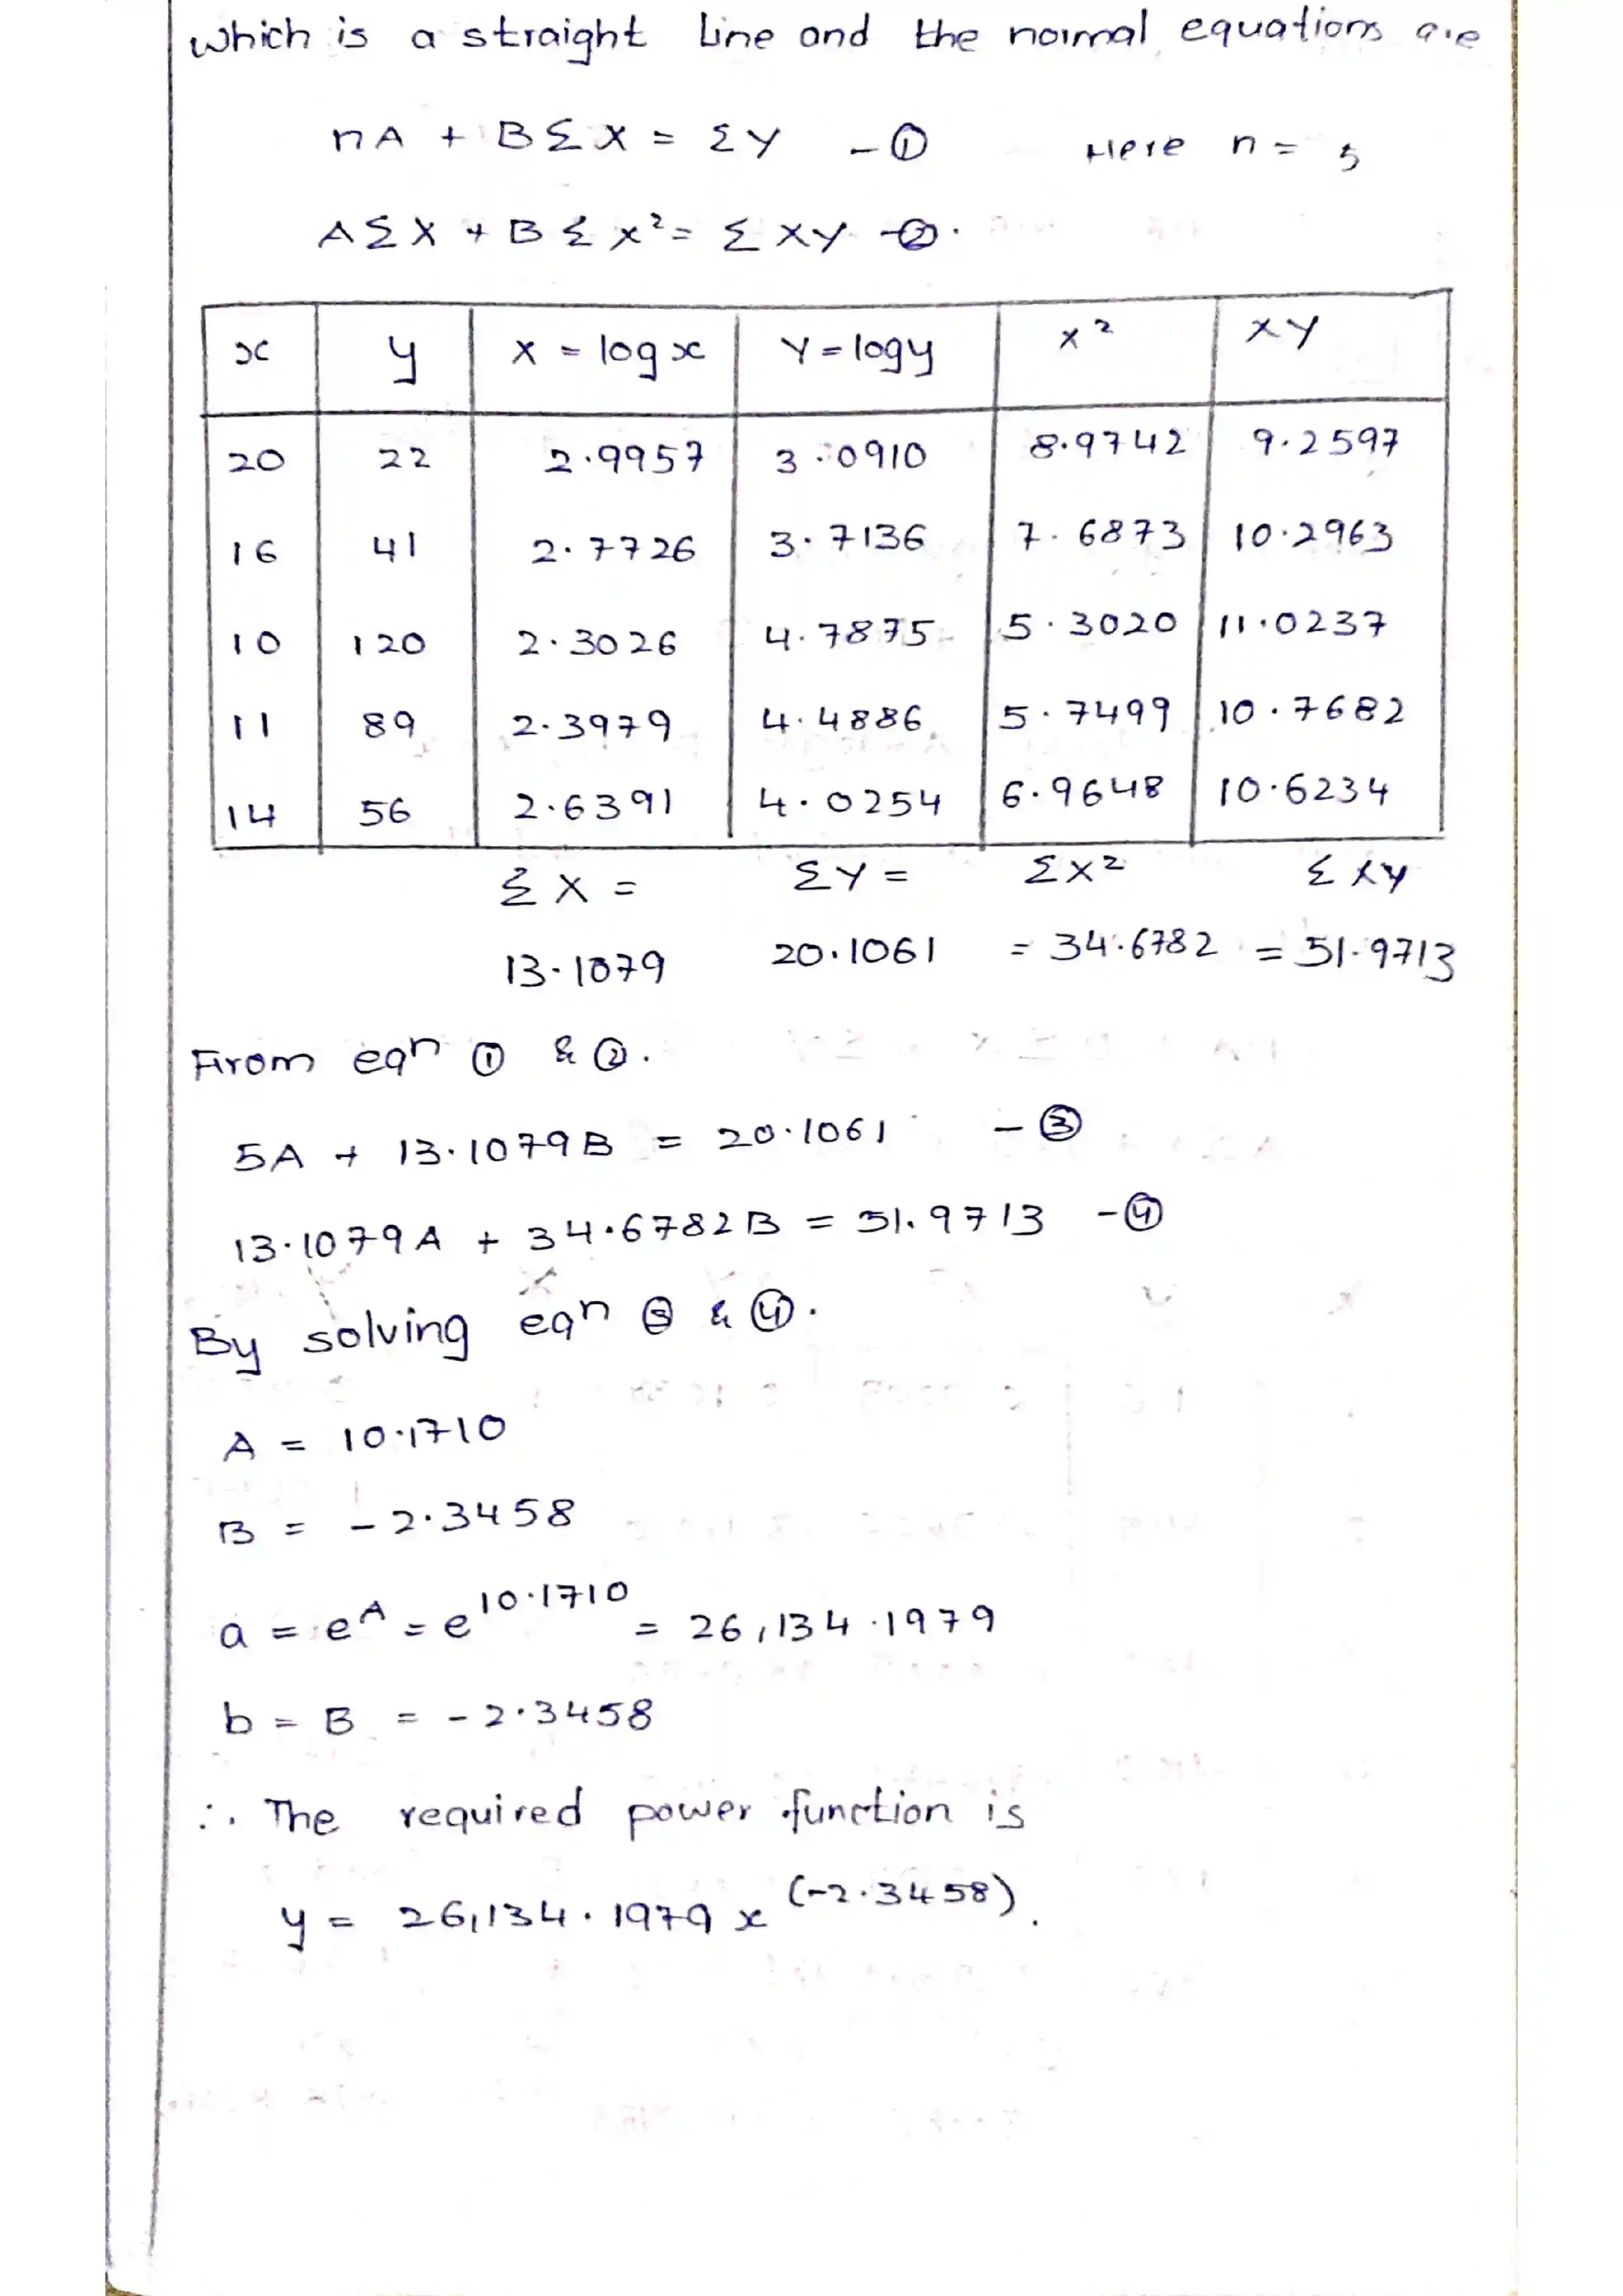 which is a straight line and the normal equations are
nA + BΣX = ΣY - ① Here n = 5
AΣX + BΣx² = ΣXY - ②.
x y X = log x Y = log y x² XY
20 22 2.9957 3.0910 8.9742 9.2597
16 41 2.7726 3.7136 7.6873 10.2963
10 120 2.3026 4.7875 5.3020 11.0237
11 89 2.3979 4.4886 5.7499 10.7682
14 56 2.6391 4.0254 6.9648 10.6234
ΣX = ΣY = ΣX² ΣXY
13.1079 20.1061 = 34.6782 = 51.9713
From eqn ① & ②.
5A + 13.1079B = 20.1061 - ③
13.1079A + 34.6782B = 51.9713 - ④
By solving eqn ③ & ④.
A = 10.1710
B = -2.3458
a = e^A = e^10.1710 = 26,134.1979
b = B = -2.3458
∴ The required power function is
y = 26,134.1979 x^(-2.3458).